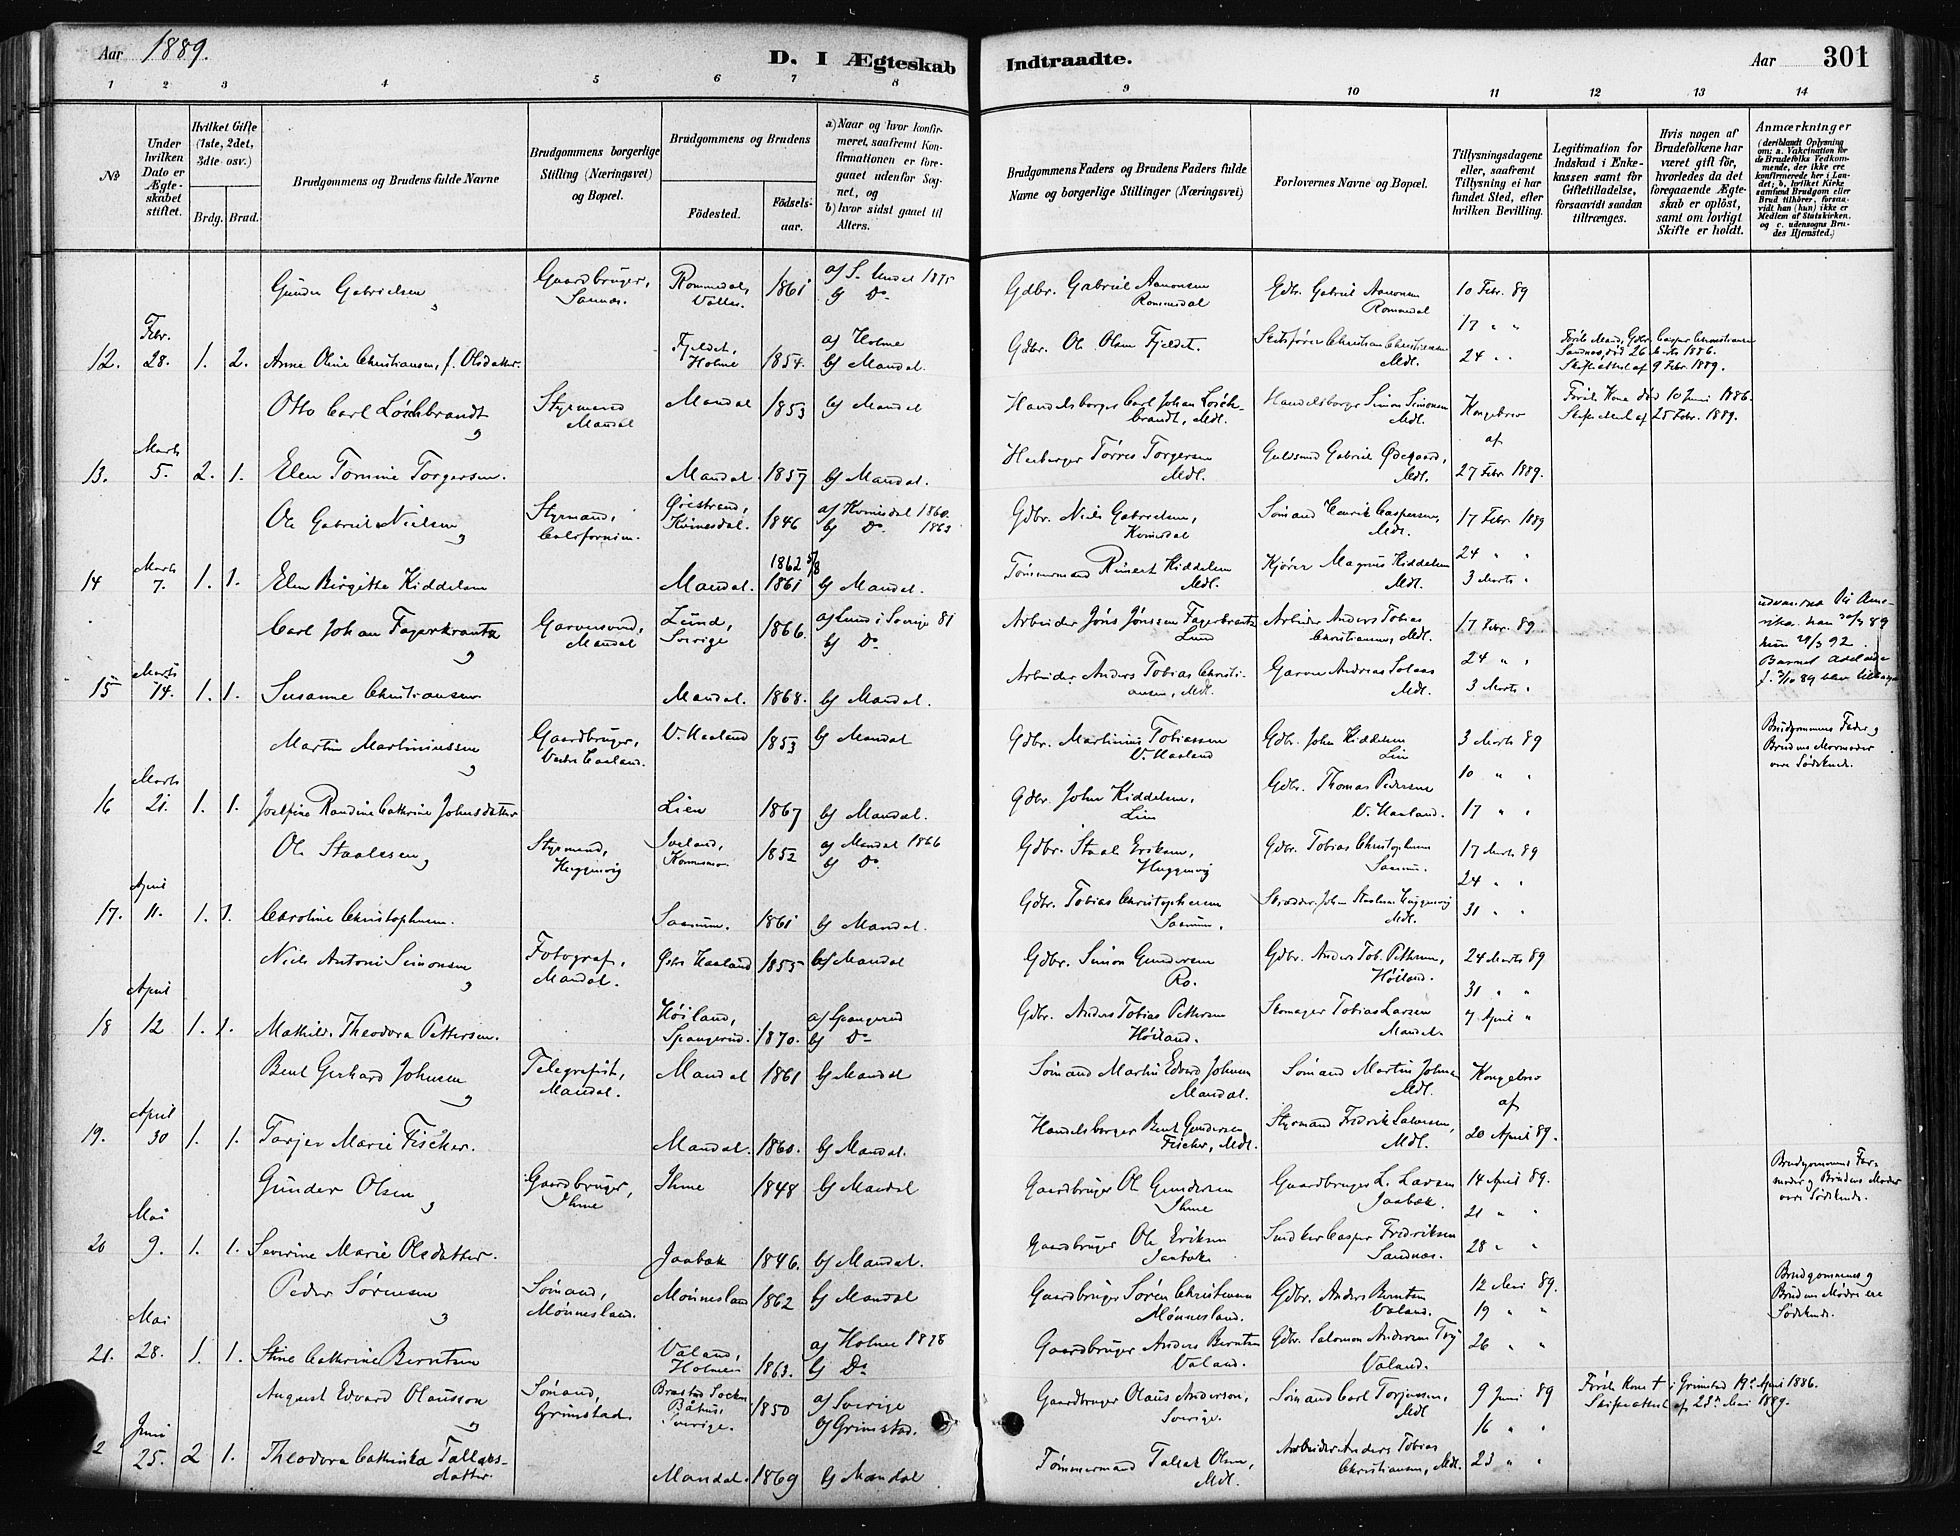 Aar 1889.
D. I Ægteskab Indtraadte.
Aar 301
1 2 3 4 5 6 7 8 9 10 11 12 13 14
No
Under hvilken Dato er Ægteskabet stiftet.
Hvilket Gifte (1ste, 2det, 3die osv.)
Brdg. Brud.
Brudgommens og Brudens fulde Navne
Brudgommens borgerlige Stilling (Næringsvei) og Bopæl.
Brudgommens og Brudens
Födested.
Födselsaar.
a) Naar og hvor konfirmeret, saafremt Konfirmationen er foregaaet udenfor Sognet, og
b) hvor sidst gaaet til Alters.
Brudgommens Faders og Brudens Faders fulde Navne og borgerlige Stillinger (Næringsvei)
Forlovernes Navne og Bopæl.
Tillysningsdagene eller, saafremt Tillysning ei har fundet Sted, efter hvilken Bevilling.
Legitimation for Indskud i Enkekassen samt for Giftetilladelse, forsaavidt saadan tiltrænges.
Hvis nogen af Brudefolkene har været gift för, hvorledes da det foregaaende Ægteskab er oplöst, samt om lovligt Skifte er holdt.
Anmærkninger (deriblandt Oplysning om: a. Vakcination for de Brudefolks Vedkommende, der ikke ere konfirmerede her i Landet; b. hvilket Kirkesamfund Brudgom eller Brud tilhörer, forsaavidt han (hun) ikke er Medlem af Statskirken, og c. udensogns Brudes Hjemsted.)
Gunder Gabrielsen, Gaardbruger, Sannæs. 1861 Gdbr. Gabriel Aanonsen Gdbr. Gabriel Aanonsen 10 Febr. 89
17 " "
12. Febr. 28. 1. 2. Anne Oline Christiansen, f. Olsdatter. Fjeldet, Holme 1854. af Holme bf Mandal. Gdbr. Ole Olsen Fjeldet. Christian Christiansen Mdl. 24 " "
Första Mand, Gdbr. Casper Christiansen Sandnes, död 26 1886. Skifteattest af 9 Febr. 1889.
Otto Carl Löschbrandt, Styrmand Mandal Mandal 1853 bf Mandal Handelsborger Carl Johan Löschbrandt, Mdl. Handelsborger Simon Simonsen Mdl. Kongebrev af
Første Kone död 10 Juni 1886. Skifteattest af 25 Febr. 1889.
13. Marts 5. 2. 1. Elen Tomine Torgersen. Mandal. 1857 bf Mandal. Torres Torgersen Mdl. Guldsmed Gabriel Ødegaard, Mdl. 27 Febr 1889.
Ole Gabriel Nielsen, Styrmand, Californien. Kvinesdal. 1846 af Kvinesdal 1860. bf Do 1863 Gdbr. Niels Gabrielsen, Kvinesdal Sömand Henrik Caspersen, Mdl. 17 Febr 1889
24 " "
14 Marts 7. 1. 1. Elen Birgitte Kiddelsen Mandal. 1862 5/8 1861 bf Mandal. Tömmermand Reinert Kiddelsen Mdl. Kjörer Magnus Kiddelsen Mdl. 3 Marts "
Carl Johan Fagerkrantz, Garversvend, Mandal Lund, Sverige 1866. af Lund i Sverige 81 bf Do Arbeider Jöns Jönssen Fagerkrantz Lund Arbeider Anders Tobias Christiansen, Mdl. 17 Febr. 89
24 " "
15 Marts 14. 1. 1. Susanne Christiansen Mandal. 1868. bf Mandal. Arbeider Anders Tobias Christiansen, Mdl. Garver Andreas Mdl. 3 Marts "
Martin Martiniussen, Gaardbruger, Vestre Haaland. V. Haaland 1853 bf Mandal Gdbr. Martinius Tobiassen V. Haaland Gdbr. John Kiddelsen Lien 3 Marts 89
Brudgommens Fader og Brudens Mormoder ere Södskende.
10 " "
16 Marts 21. 1. 1. Josefine Randine Cathrine Johnsdatter Lien 1867 bf Mandal. Gdbr. John Kiddelsen, Lien Gdbr. Thomas Pedersen V. Haaland. 17 " "
Ole Staalesen, Styrmand, Huggenvig 1852 af Mandal 1866 bf Do Gdbr. Staale Eriksen, Huggenvig Gdbr. Tobias Christophersen 17 Marts 89
24 " "
17. April 11. 1. 1. Caroline Christophersen. 1861 bf Mandal. Gdbr. Tobias Christophersen Mdl. 31 " "
Niels Antoni Simonsen, Fotograf, Mandal. Östre Haaland 1855 bf Mandal Gdbr. Simon Gundersen Ro. Gdbr. Anders Tob. Pettersen, Höiland. 24 Marts 89
31 " "
18 April 12 1. 1. Mathilde Theodora Pettersen. Höiland, Spangereid. 1870. af Spangereid bf Do Gdbr. Anders Tobias Pettersen Höiland. Skomager Tobias Larsen Mandal. 7 April "
Bent Gerhard Johnsen, Telegrafist, Mandal. Mandal 1861 bf Mandal Sömand Martin Edvard Johnsen Mandal. Sömand Martin Johnsen Mdl. Kongebrev af
19. April 30 1. 1. Tarjer Marie Fischer. Mandal. 1860. bf Mandal. Handelsborger Bent Gundersen Fischer, Mdl. Styrmand Fredrik Salvesen, Mdl. 20 April 89.
Gunder Olsen, Gaardbruger, Ihme Ihme 1848 bf Mandal Gaardbruger Ole Gundersen Ihme Gaardbruger L. Larsen Jaabæk 14 April 89.
Brudgommens Farmoder og Brudens Moder ere Södskende.
21 " "
20 Mai 9. 1. 1. Severine Marie Olsdatter. Jaabæk 1846. bf Mandal. Gaardbruger Ole Eriksen Jaabæk Casper Fredriksen Sandnæs. 28 " "
Peder Sörensen, Sömand, Mönnesland. Mönnesland 1862 bf Mandal Gaardbruger Sören Christensen Mönnesland. Gdbr. Anders Berntsen Valand. 12 Mai 89.
Brudgommens og Brudens Mödre ere Södskende.
19 " "
21. Mai 28. 1. 1. Stine Cathrine Berntsen Valand, Holmen 1863. af Holme 1878 bf Do Gaardbruger Anders Berntsen Valand. Gdbr. Salomon Andersen Valand. 26 " "
August Edvard Olausson, Sömand, Grimstad Brastad Socken Båhus. Sverige. 1850 af Sverige bf Grimstad. Gaardbruger Olaus Anderson, Sverige. Sömand Carl Torjussen, Mdl 9 Juni 89
Første Kone † i Grimstad 19de April 1886. Skifteattest af 28de Mai 1889.
16 " "
2 Juni 25. 2 1. Theodora Cathinka Tallaksdatter. Mandal. 1869 bf Mandal Tömmermand Talak Olsen, Mdl. Arbeider Anders Tobias Christiansen, Mdl. 23 " "